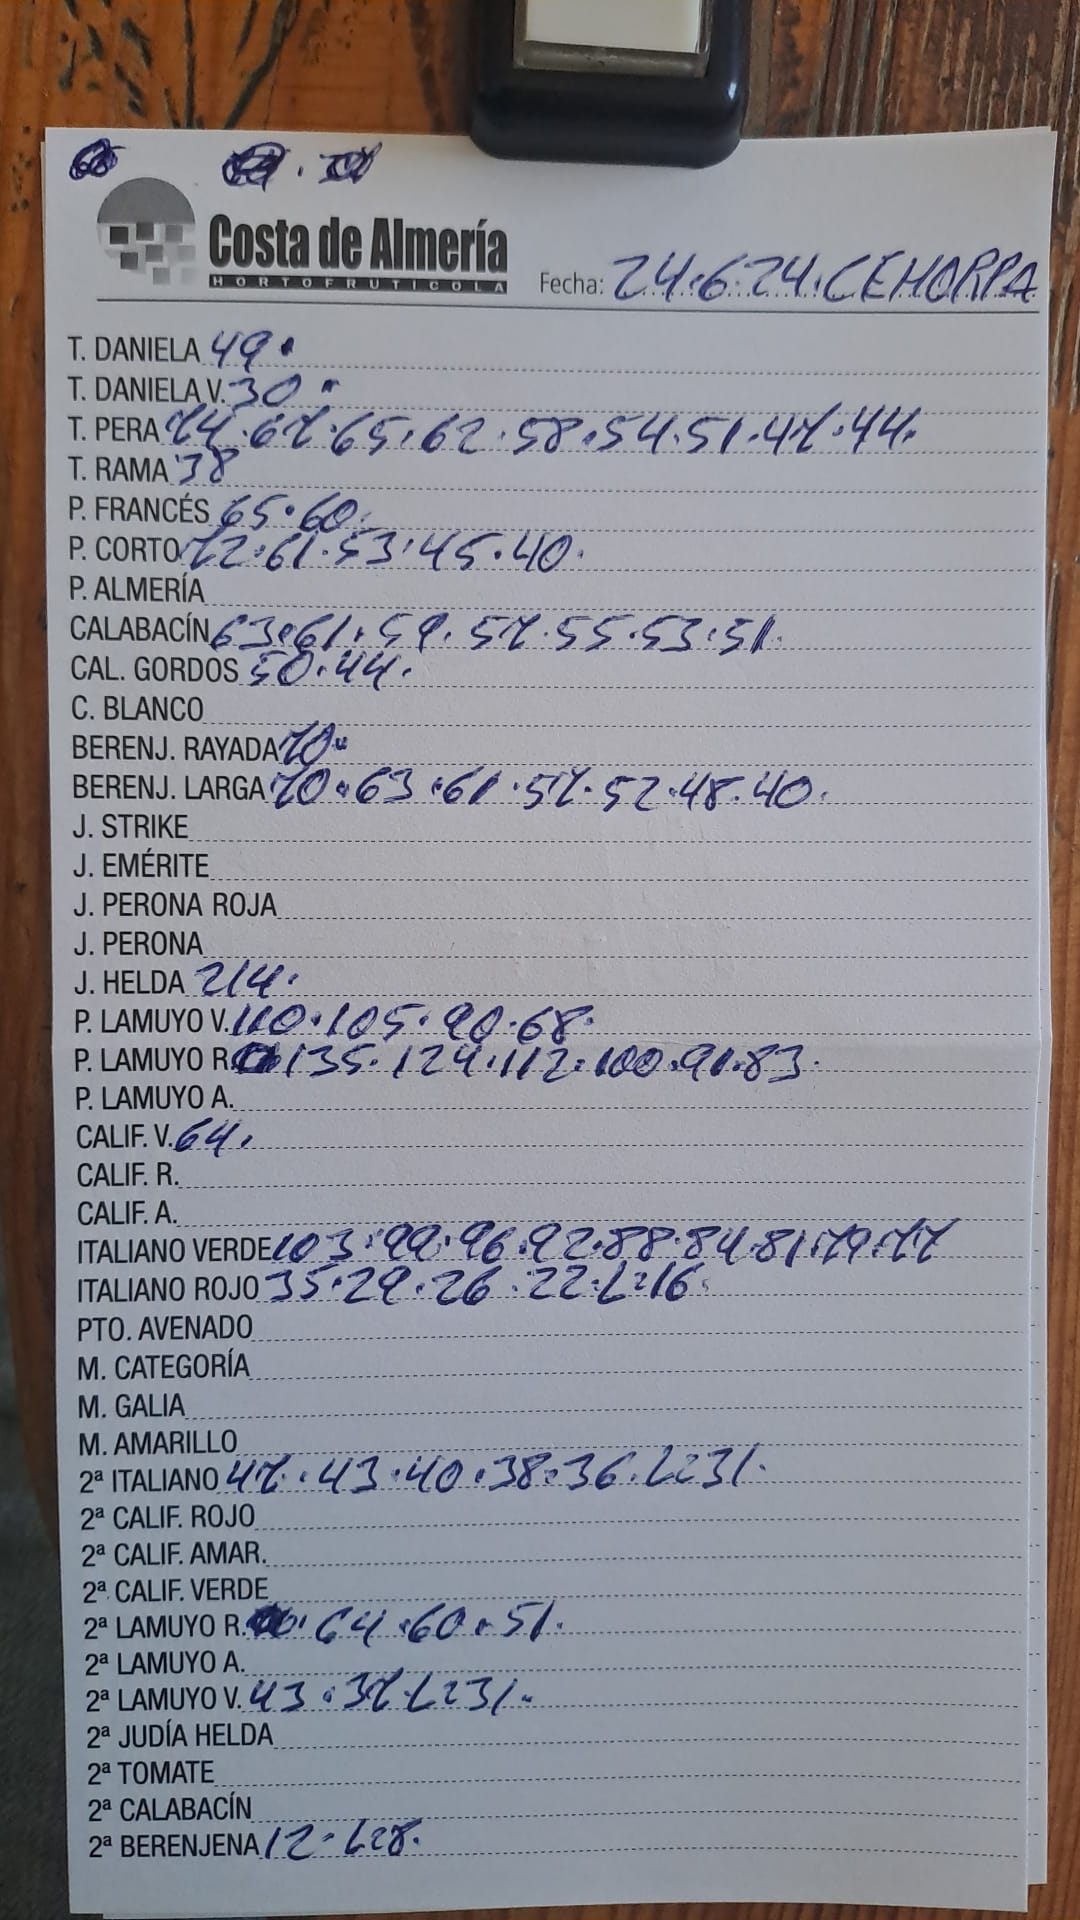 Costa de Almería
HORTOFRUTICOLA
Fecha: 24.6.24. CEHORPA
T. DANIELA 49.
T. DANIELA V. 30.
T. PERA 74.67.65.62.58.54.51.47.44.
T. RAMA 38
P. FRANCÉS 65.60.
P. CORTO 72.61.53.45.40.
P. ALMERÍA
CALABACÍN 63.61.59.57.55.53.51.
CAL. GORDOS 50.44.
C. BLANCO
BERENJ. RAYADA 70.
BERENJ. LARGA 70.63.61.57.52.48.40.
J. STRIKE
J. EMÉRITE
J. PERONA ROJA
J. PERONA
J. HELDA 214.
P. LAMUYO V. 110.105.90.68.
P. LAMUYO R. 135.124.112.100.91.83.
P. LAMUYO A.
CALIF. V. 64.
CALIF. R.
CALIF. A.
ITALIANO VERDE 103.99.96.92.88.84.81.79.77
ITALIANO ROJO 35.29.26.22.L:16.
PTO. AVENADO
M. CATEGORÍA
M. GALIA
M. AMARILLO
2ª ITALIANO 47.43.40.38.36.L:31.
2ª CALIF. ROJO
2ª CALIF. AMAR.
2ª CALIF. VERDE
2ª LAMUYO R. 64.60.51.
2ª LAMUYO A.
2ª LAMUYO V. 43.37.L:31.
2ª JUDÍA HELDA
2ª TOMATE
2ª CALABACÍN
2ª BERENJENA 12.L:8.